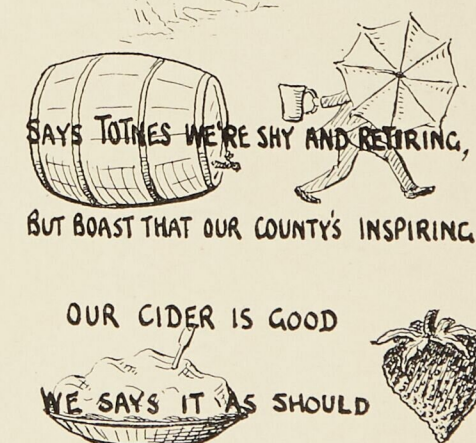 SAYS TOTNES WE'RE SHY AND RETIRING,
BUT BOAST THAT OUR COUNTY'S INSPIRING
OUR CIDER IS GOOD
WE SAYS IT AS SHOULD